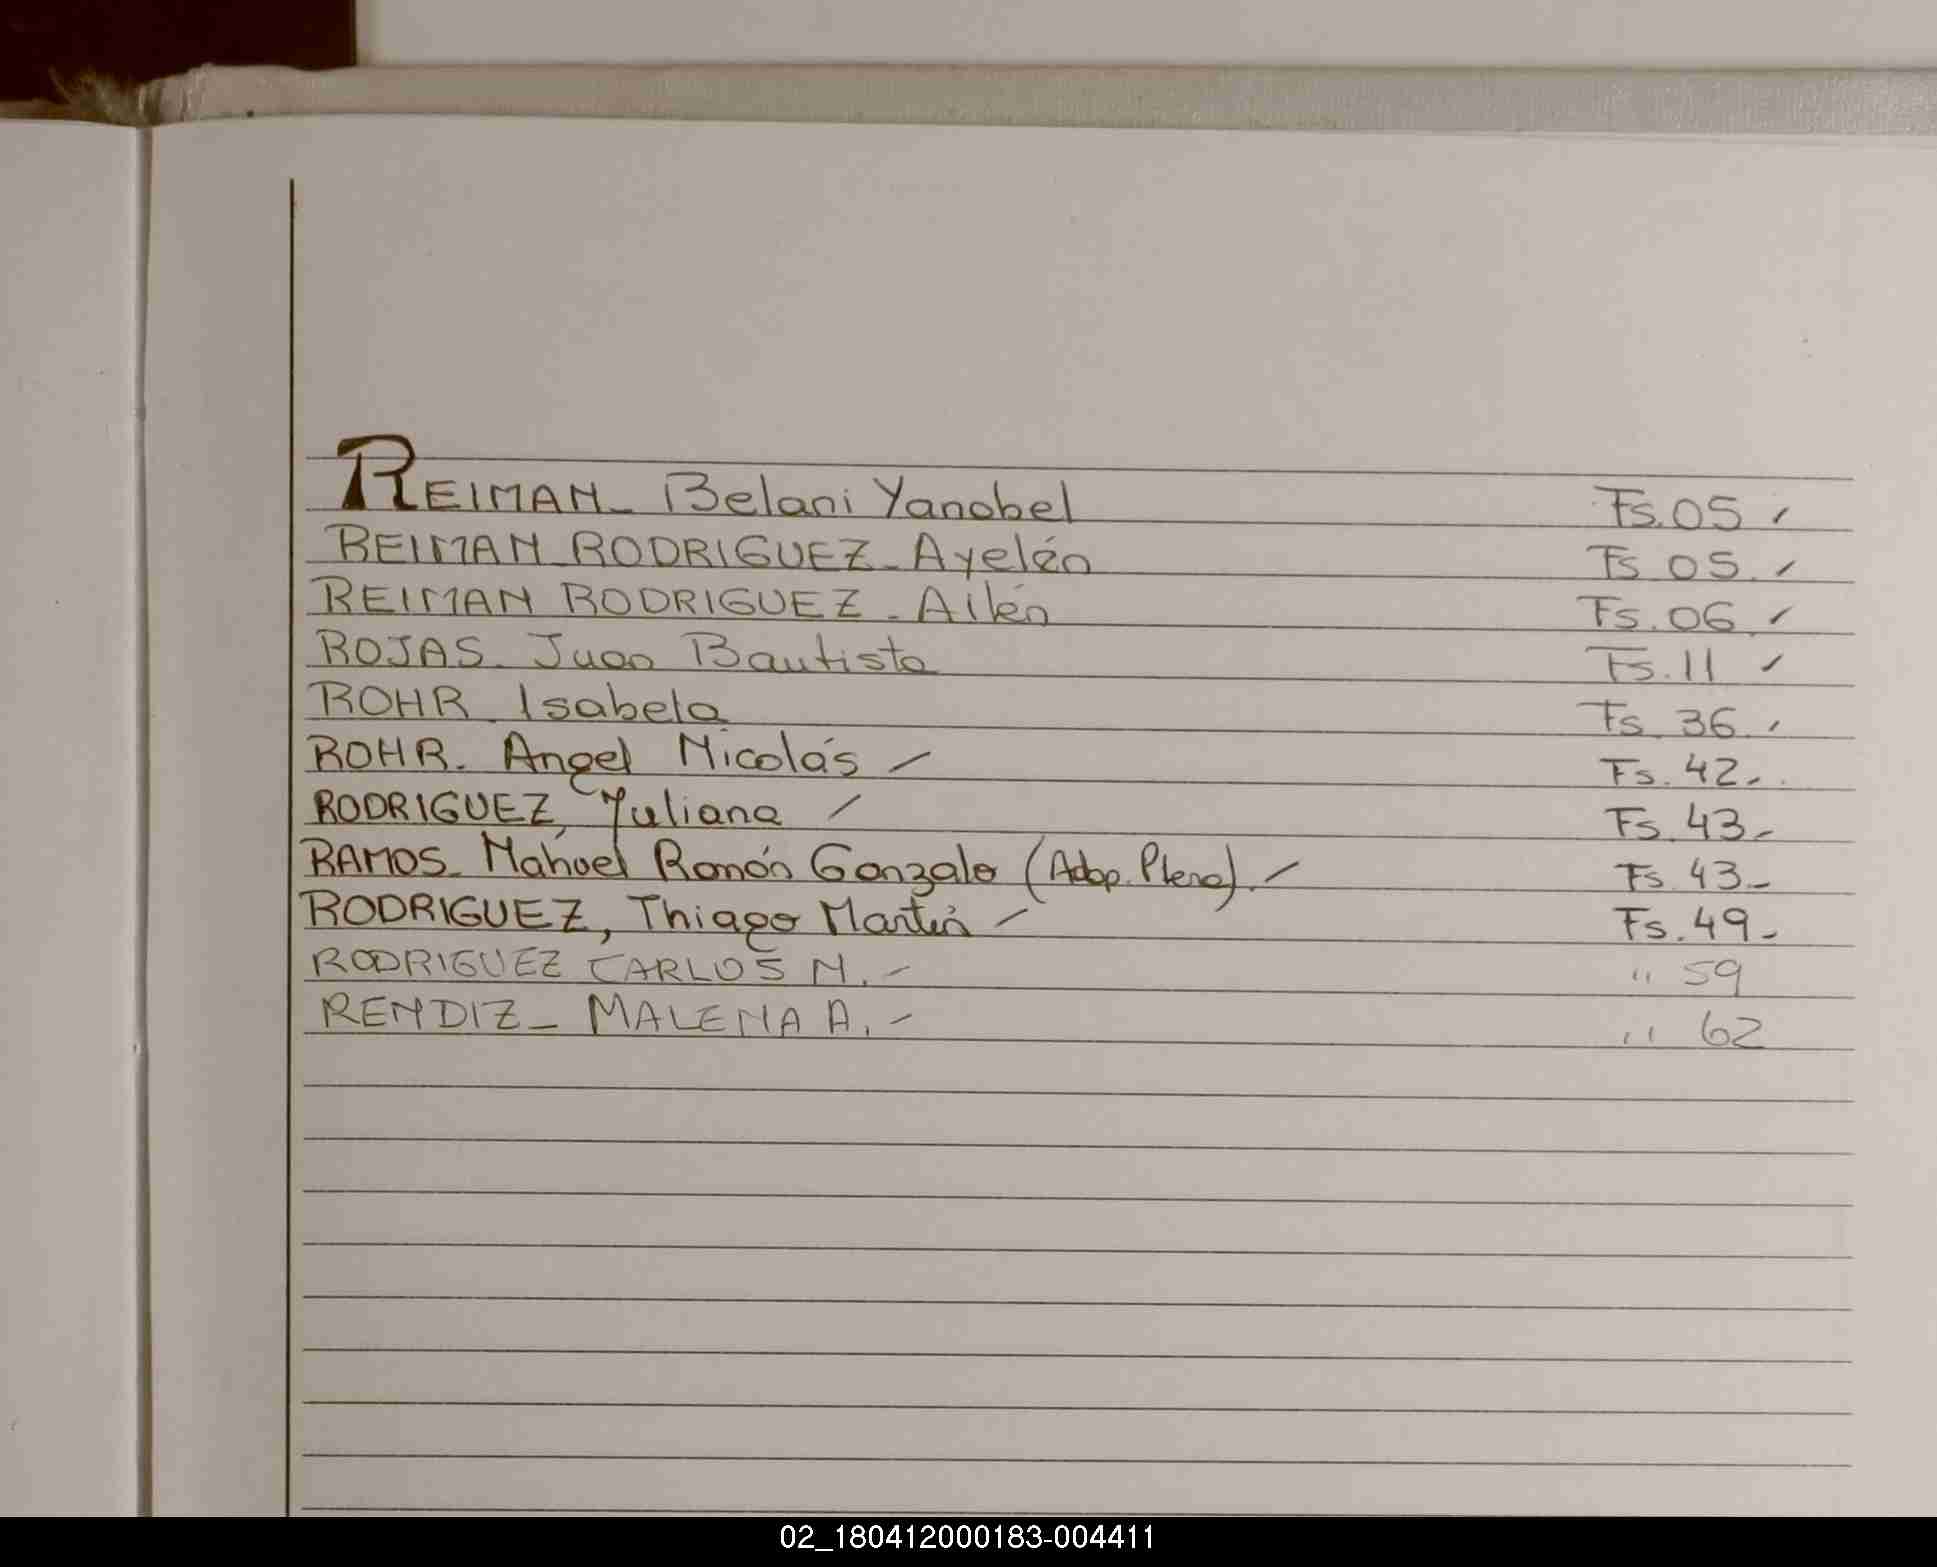 REIMAN_ Belani Yanabel Fs. 05
REIMAN RODRIGUEZ_ Ayelén Fs 05.
REIMAN RODRIGUEZ_ Ailén Fs. 06
ROJAS_ Juan Bautista Fs. 11
ROHR_ Isabela Fs. 36.
ROHR_ Angel Nicolás Fs. 42.
RODRIGUEZ, Yuliana Fs. 43_
RAMOS_ Manuel Ramón Gonzalo (Adop. Plena). Fs. 43_
RODRIGUEZ, Thiago Martín Fs. 49_
RODRIGUEZ CARLOS N._ " 59
RENDIZ_ MALENA A._ " 62
02_180412000183-004411